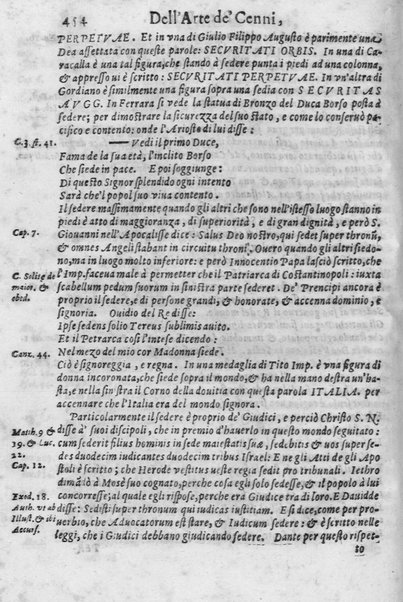 454 Dell'Arte de' Cenni,
PERPETVAE. Et in vna di Giulio Filippo Augusto è parimente vna
Dea assettata con queste parole: SECVRITATI ORBIS. In vna di Ca-
racalla è vna tal figura, che stando à sedere punta i piedi ad vna colonna,
& appresso vi è scritto: SECVRITATI PERPETVAE. In vn'altra di
Gordiano è similmente vna figura sopra vna sedia con SECVRITAS
AVGG. In Ferrara si vede la statua di Bronzo del Duca Borso posta à
sedere; per dimostrare la sicurezza del suo stato, e come lo conseruò pa-
cifico e contento: onde l'Ariosto di lui disse:
C. 3. st. 41. Vedi il primo Duce,
Fama de la sua età, l'inclito Borso
Che siede in pace. E poi soggiunge:
Di questo Signor splendido ogni intento
Sarà che'l popol suo viua contento.
Il sedere massimamente quando gli altri che sono nell'istesso luogo stanno in
piedi è atto di maggioranza, di superiorità, e di gran dignità, e però S.
Cap. 7. Giouanni nell'Apocalisse dice: Salus Deo nostro, qui sedet super thronũ,
& omnes Angeli stabant in circuitu throni. Ouero quando gli altri siedo-
no, ma in luogo molto inferiore: e però Innocentio Papa lasciò scritto, che
C. Solitę de l'Imp. faceua male à permetter che il Patriarca di Costantinopoli: iuxta
maior. & scabellum pedum suorum in sinistra parte sederet. De' Prencipi ancora è
obed. proprio il sedere, e di persone grandi, & honorate, & accenna dominio, e
signoria. Ouidio del Re disse:
Ipse sedens solio Tereus sublimis auito.
Et il Petrarca così l'intese dicendo:
Canz. 44. Nel mezo del mio cor Madonna siede.
Ciò è signoreggia, e regna. In vna medaglia di Tito Imp. è vna figura di
donna incoronata, che siede sopra il mondo, & ha nella mano destra vn'ha-
sta, e nella sinistra il Corno della douitia con questa parola ITALIA. per
accennare che l'Italia era del mondo signora.
Particolarmente il sedere è proprio de' Giudici, e perciò Christo S. N.
Matth. 9 disse à' suoi discepoli, che in premio d'hauerlo in questo mondo seguitato:
19. & Luc. cum sederit filius hominis in sede maiestatis suæ, sedebitis & vos super se-
22. des duodecim iudicantes duodecim tribus Israel: E ne gli Atti de gli Apo
Cap. 12. stoli è scritto; che Herode vestitus veste regia sedit pro tribunali. Iethro
dimãdò à Mosè suo cognato, perche cosa egli solo sedesse, & il popolo à lui
Exod. 18. concorresse; al quale egli rispose, perche era Giudice tra di loro. E Dauidde
Auth. vt ab disse: Sedisti super thronum qui iudicas iustitiam. E si dice, come per pro-
Illust. & ibi uerbio, che Aduocatorum est stare, & Iudicum sedere: & è scritto nelle
Accurs. leggi, che i Giudici debbano giudicando sedere. Dante per questo rispet-
to